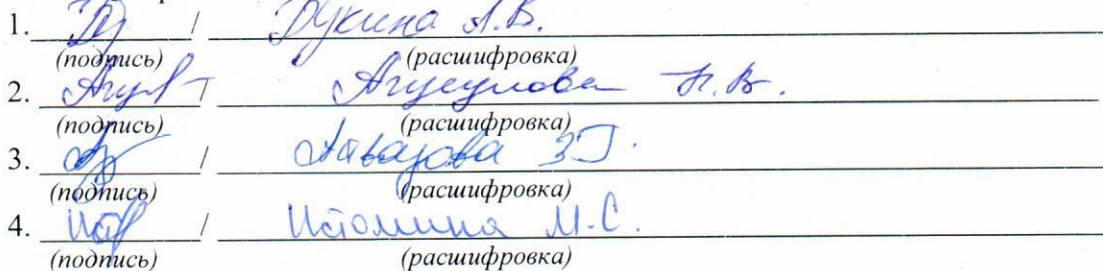 1. / Дукина А.В.
(подпись) (расшифровка)
2. / Н.В.
(подпись) (расшифровка)
3. / Айвазова З.Г.
(подпись) (расшифровка)
4. / Истомина М.С.
(подпись) (расшифровка)